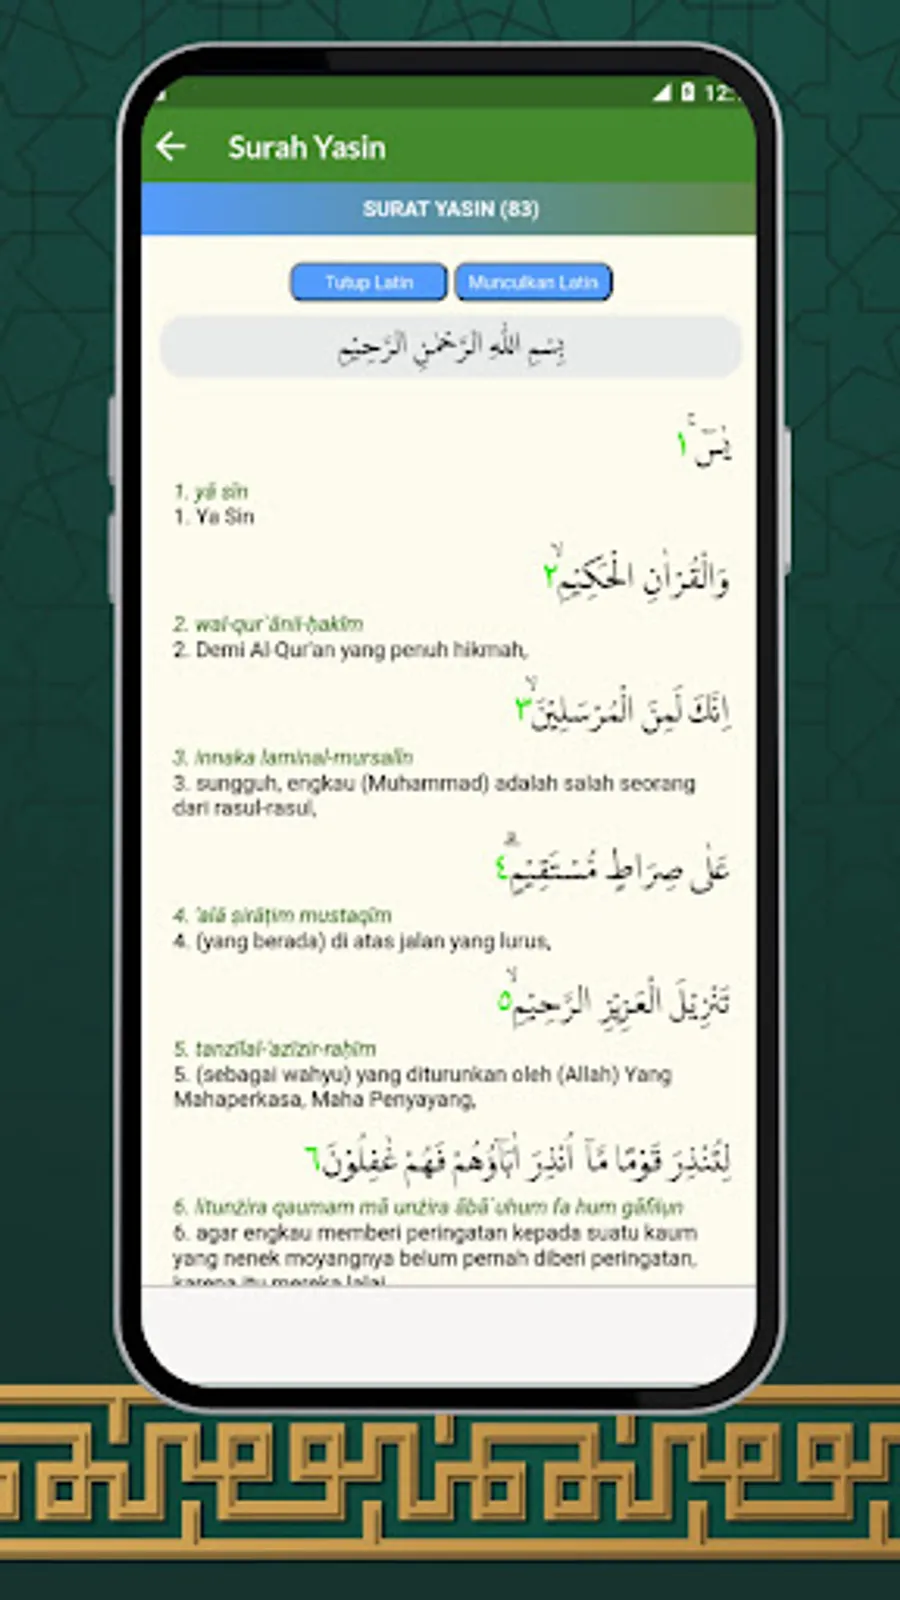 12:
Surah Yasin
SURAT YASIN (83)
Tutup Latin Munculkan Latin
بِسْمِ اللّٰهِ الرَّحْمٰنِ الرَّحِيْمِ
يٰسۤ ۚ ١
1. yā sīn
1. Ya Sin
وَالْقُرْاٰنِ الْحَكِيْمِۙ ٢
2. wal-qur`ānil-ḥakīm
2. Demi Al-Qur'an yang penuh hikmah,
اِنَّكَ لَمِنَ الْمُرْسَلِيْنَۙ ٣
3. innaka laminal-mursalīn
3. sungguh, engkau (Muhammad) adalah salah seorang
dari rasul-rasul,
عَلٰى صِرَاطٍ مُّسْتَقِيْمٍۗ ٤
4. 'alā ṣirāṭim mustaqīm
4. (yang berada) di atas jalan yang lurus,
تَنْزِيْلَ الْعَزِيْزِ الرَّحِيْمِۙ ٥
5. tanzīlal-'azīzir-raḥīm
5. (sebagai wahyu) yang diturunkan oleh (Allah) Yang
Mahaperkasa, Maha Penyayang,
لِتُنْذِرَ قَوْمًا مَّآ اُنْذِرَ اٰبَاۤؤُهُمْ فَهُمْ غٰفِلُوْنَ ٦
6. litunżira qaumam mā unżira ābā`uhum fa hum gāfilụn
6. agar engkau memberi peringatan kepada suatu kaum
yang nenek moyangnya belum pernah diberi peringatan,
karena itu mereka lalai